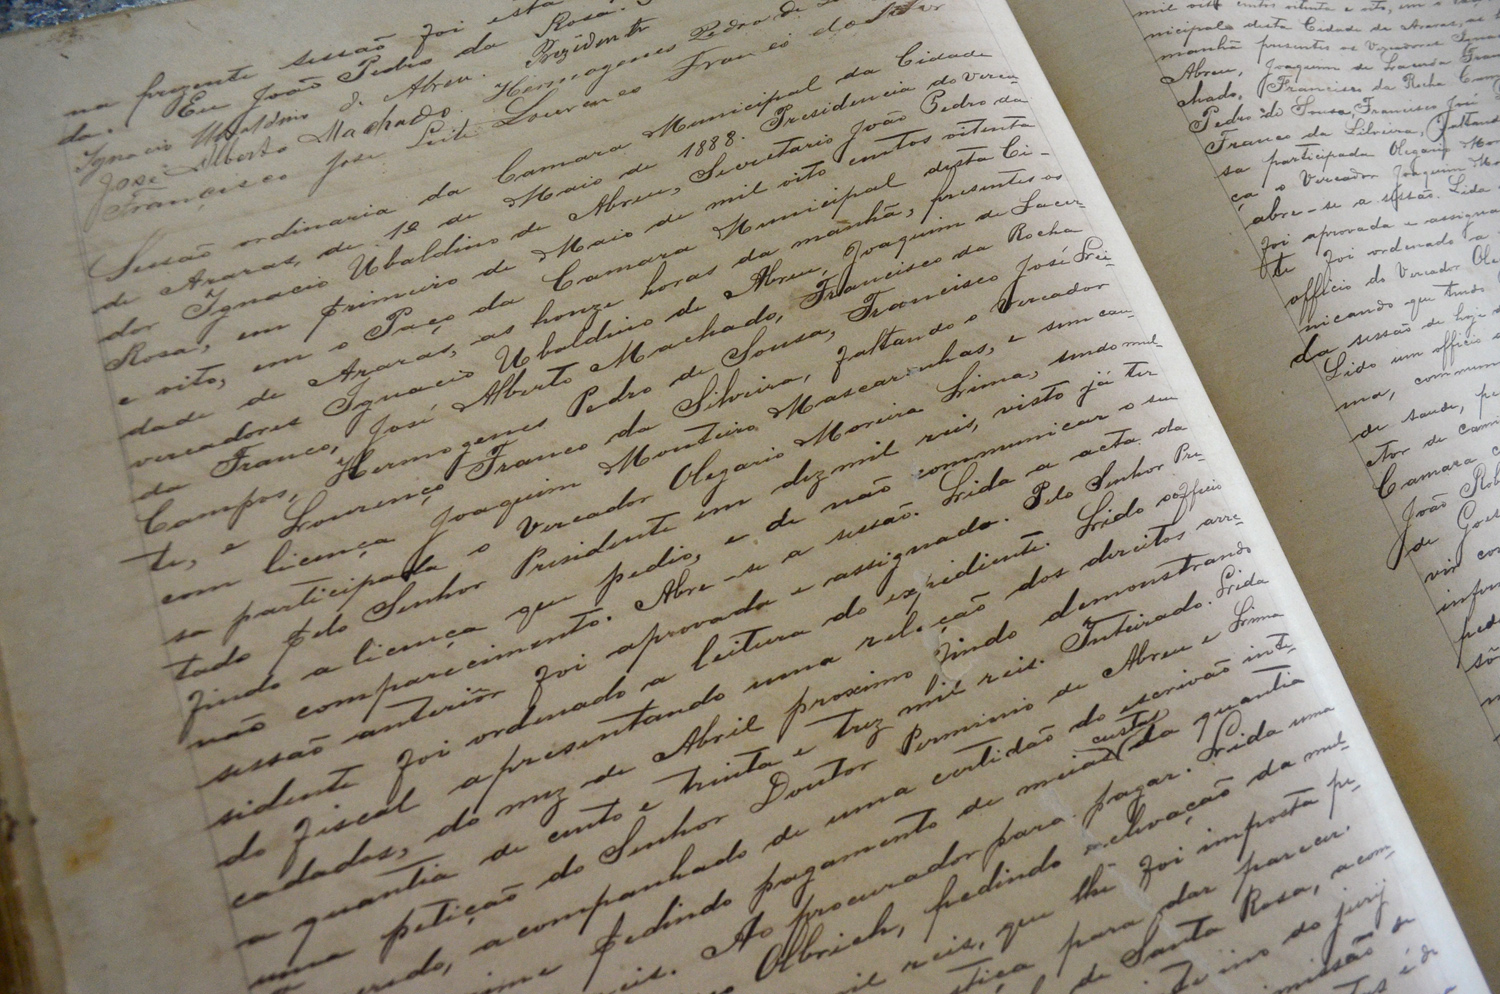 na prezente sessão foi esta
da. Eu João Pedro da Rosa.
Ignacio Ubaldino de Abreu. Prezidente
José Alberto Machado. Hermogenes Pedro de
Francisco José Leite Lourenço Franco da Silva
Sessão ordinaria da Camara Municipal da Cidade
de Araras, de 1º de Maio de 1888. Presidencia do Verea-
dor Ignacio Ubaldino de Abreu, Secretario João Pedro da
Rosa, em primeiro de Maio de mil oito centos oitenta
e oito, em o Paço da Camara Municipal desta Ci-
dade de Araras, as honze horas da manhã, presentes os
vereadores Ignacio Ubaldino de Abreu, Joaquim de Lacer-
da Franco, José Alberto Machado, Francisco da Rocha
Campos, Hermogenes Pedro de Sousa, Francisco José Lei-
te, e Lourenço Franco da Silveira, faltando o Vereador
com licença Joaquim Monteiro Mascarinhas, e sem cau-
sa participada o Vereador Olegario Moreira Lima, sendo mul-
tado pelo Senhor Presidente em dez mil reis, visto já ter
findo a licença que pedio, e de não communicar o seu
não comparecimento. Abre-se a sessão. Lida a acta da
sessão anterior foi aprovada e assignada. Pelo Senhor Pre-
sidente foi ordenado a leitura do expediente. Lido officio
do fiscal apresentando uma relação dos direitos arre-
cadados, do mez de Abril proximo findo demonstrando
a quantia de cento e trinta e trez mil reis. Inteirado. Lida
uma petição do Senhor Doutor Perminio de Abreu e Lima
acompanhado de uma certidão do escrivão int-
pedindo pagamento de meias custas da quantia
reis. Ao procurador para pagar. Lida uma
Olbrich, pedindo relevação da mul-
mil reis, que lhe foi imposta pe-
para dar parecer.
de Santa Rosa, acom-
do jury
mil oito centos oitenta e oito, em o
nicipal desta Cidade de Araras, as
manhã presentes os Vereadores Ignacio
Abreu, Joaquim de Lacerda Franco
chado, Francisco da Rocha Cam
Pedro de Sousa, Francisco José
Franco da Silveira, faltando
sa participada Olegario Mo
ça o Vereador Joaquim Mo
abre-se a sessão. Lida
foi aprovada e assigna
te foi ordenado a
officio do Vereador Ole
nicando que tendo
da sessão de hoje
Lido um officio
ma, commun
de saude, pe
ctor de cami
Camara
João Rob
de Goes
vir co
infor
pede